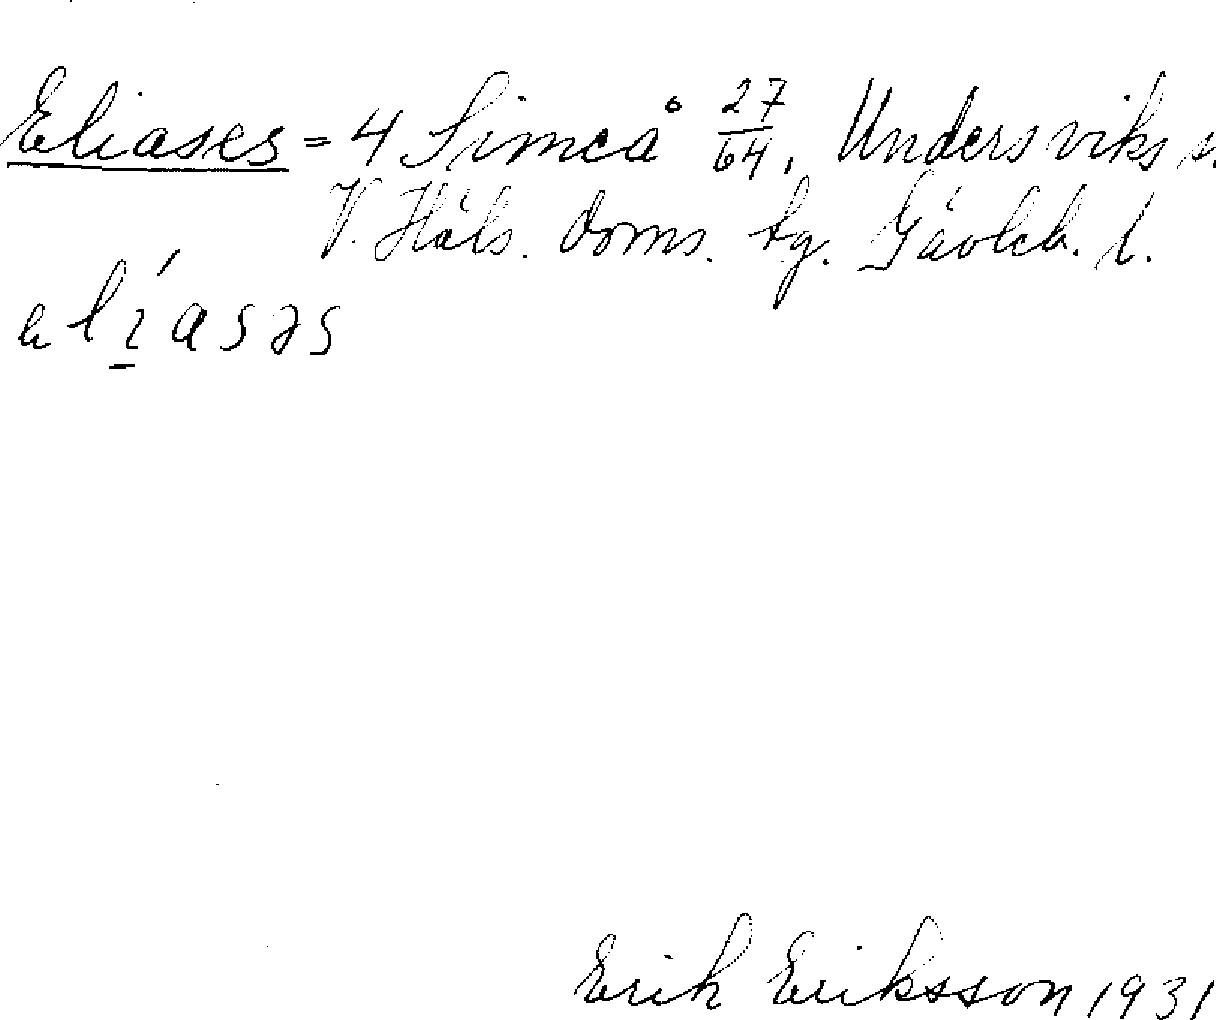 Eliases = 4 Simeå 27/64, Undersviks s.
V. Häls. doms. tg. Gävleb. l.
elíasəs
Erik Eriksson 1931